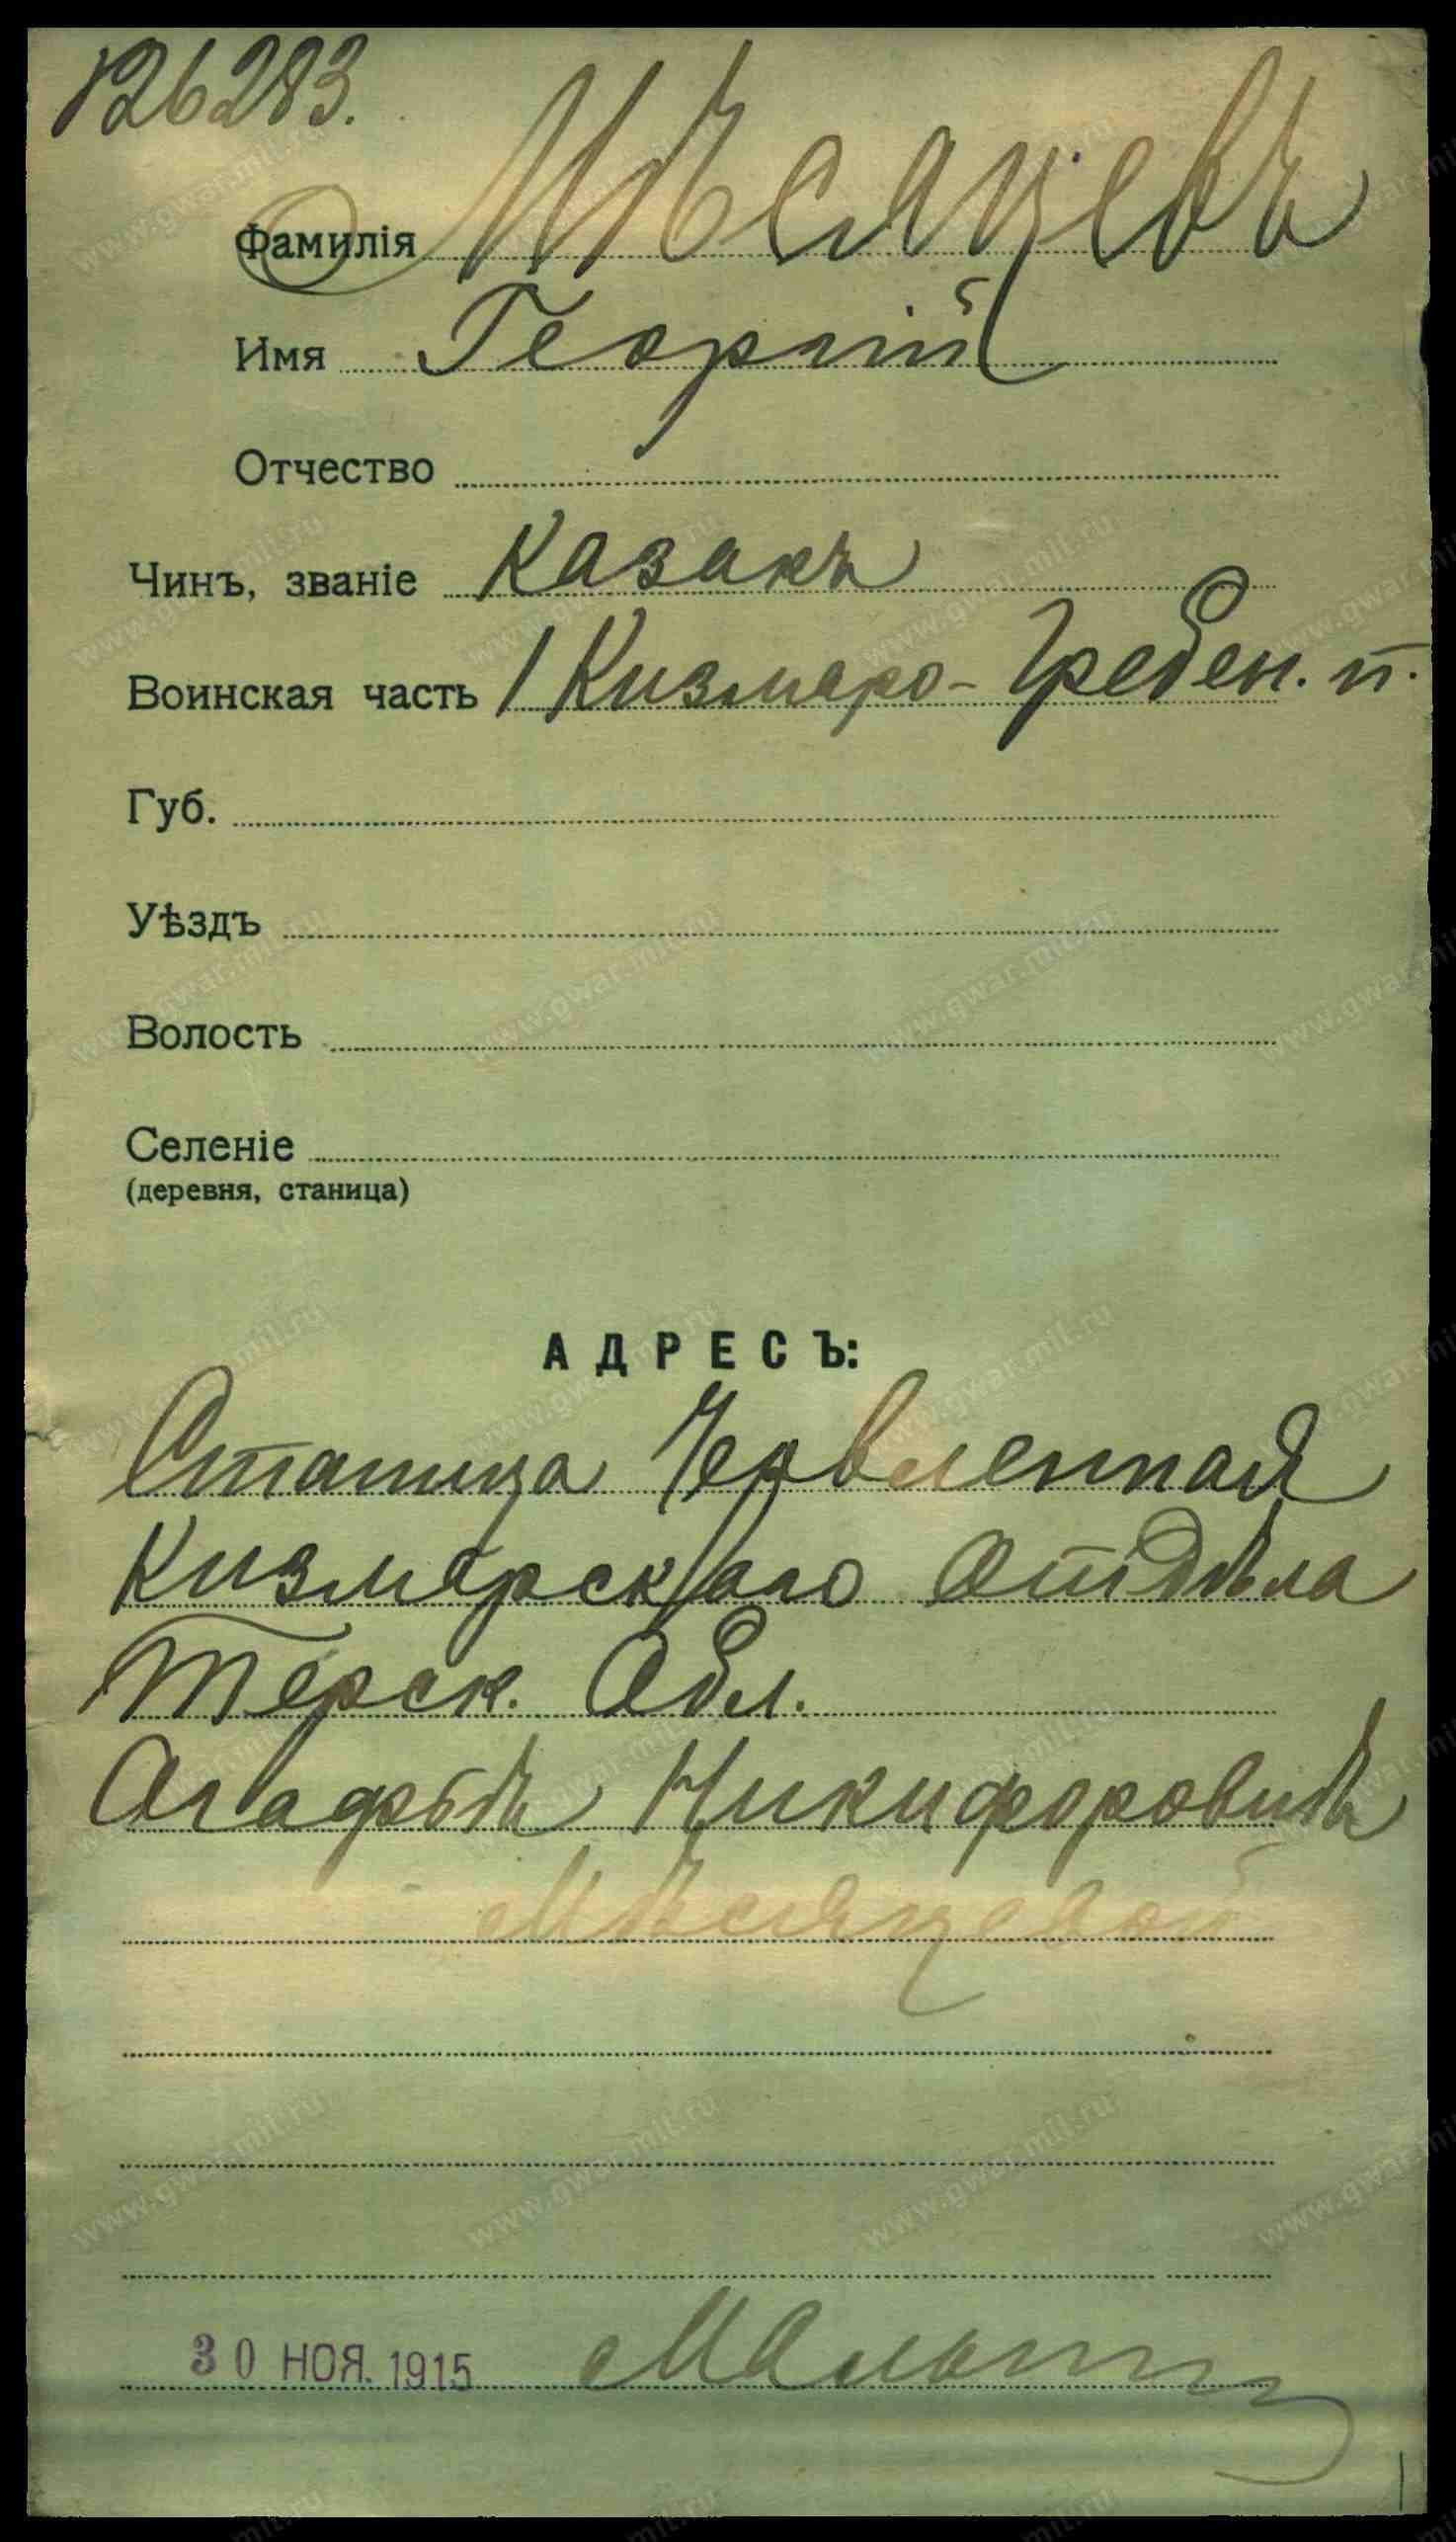 126283.
Фамилія Мѣсяцевъ
Имя Георгій
Отчество
Чинъ, званіе Казакъ
Воинская часть 1 Кизляро-Гребен. п.
Губ.
Уѣздъ
Волость
Селеніе
(деревня, станица)
АДРЕСЪ:
Станица Червленная
Кизлярскаго отдѣла
Терск. Обл.
Агафьѣ Никифоровнѣ
Мѣсяцевой
30 НОЯ. 1915
www.gwar.mil.ru